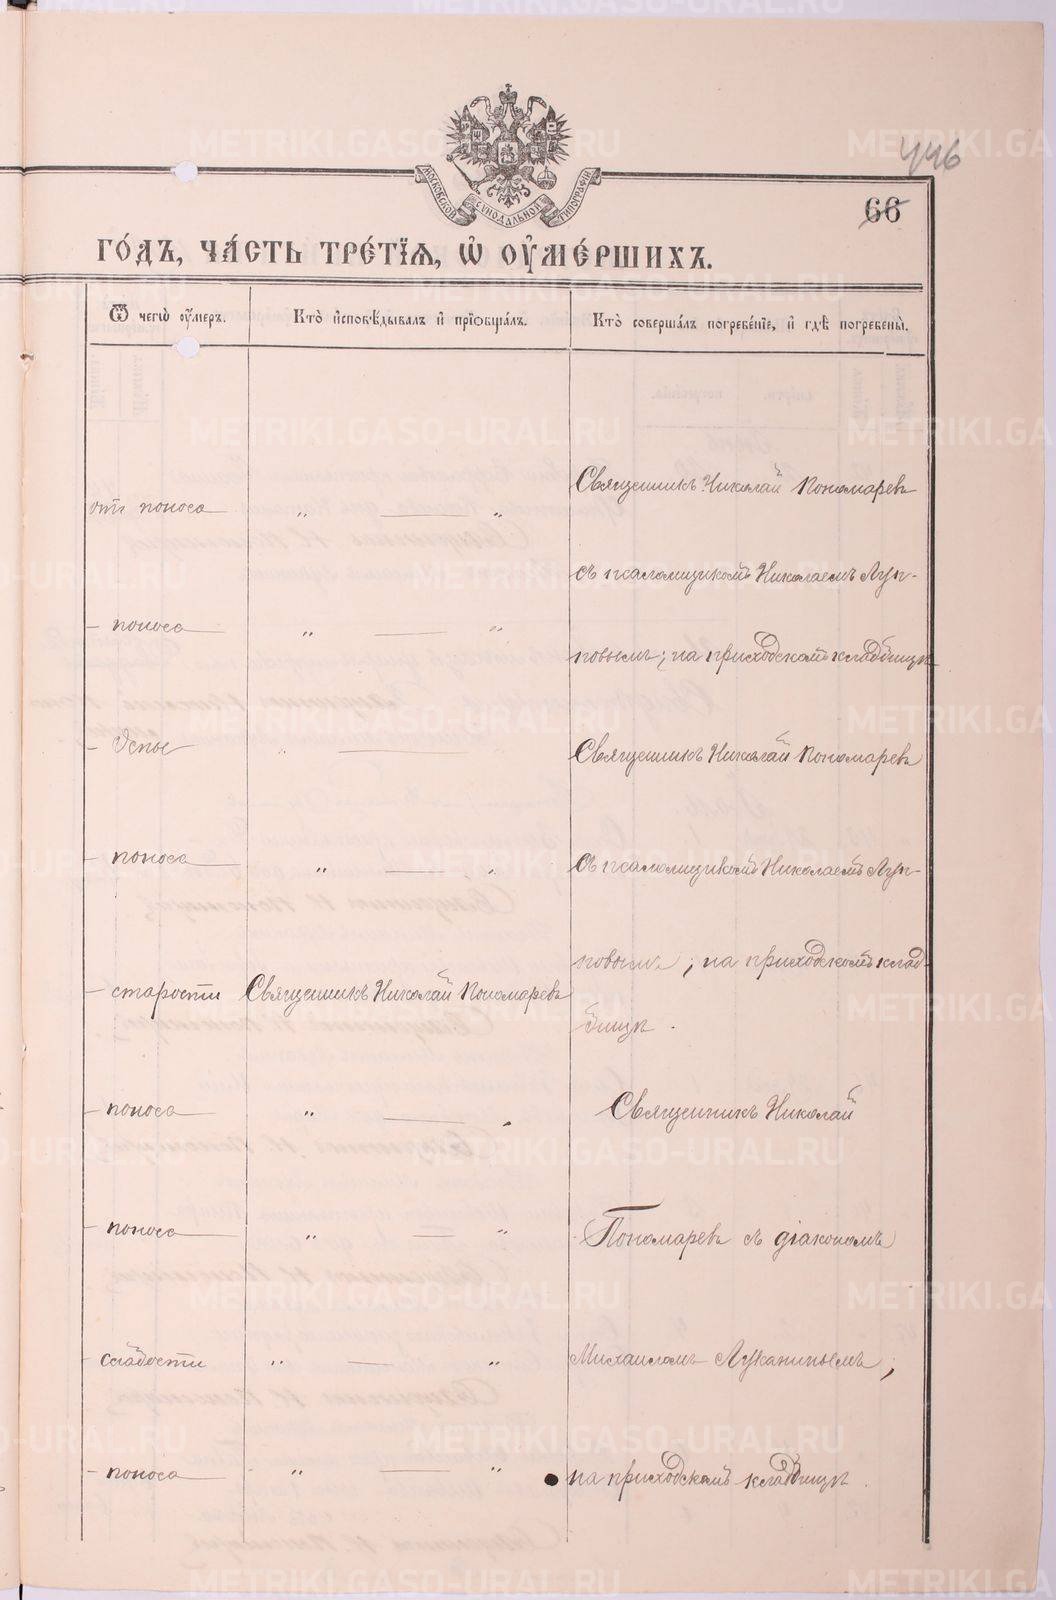 446
66
МОСКОВСКОЙ СѴНОДАЛЬНОЙ ТИПОГРАФІИ
ГО́ДЪ, ЧА́СТЬ ТРЕ́ТІѦ, Ѡ҆ ОУ҆МЕ́РШИХЪ.
Ѿ чегѡ̀ оу҆́меръ.
Кто̀ и҆сповѣ́дывалъ и҆ прїѻбща́лъ.
Кто̀ соверша́лъ погребе́нїе, и҆ гдѣ̀ погребены̀.
Священникъ Николай Пономаревъ
отъ поноса „ — „
съ псаломщикомъ Николаемъ Луп-
- поноса „ — „
повымъ; на приходскомъ кладбищѣ
- Оспы „ — „
Священникъ Николай Пономаревъ
- поноса „ — „
съ псаломщикомъ Николаемъ Луп-
повымъ; на приходскомъ клад-
- старости Священникъ Николай Пономаревъ
бищѣ.
- поноса „ — „
Священникъ Николай
- поноса „ — „
Пономаревъ съ діакономъ
- слабости „ — „
Михаиломъ Лукинымъ;
- поноса „ — „
на приходскомъ кладбищѣ.
METRIKI.GASO-URAL.RU